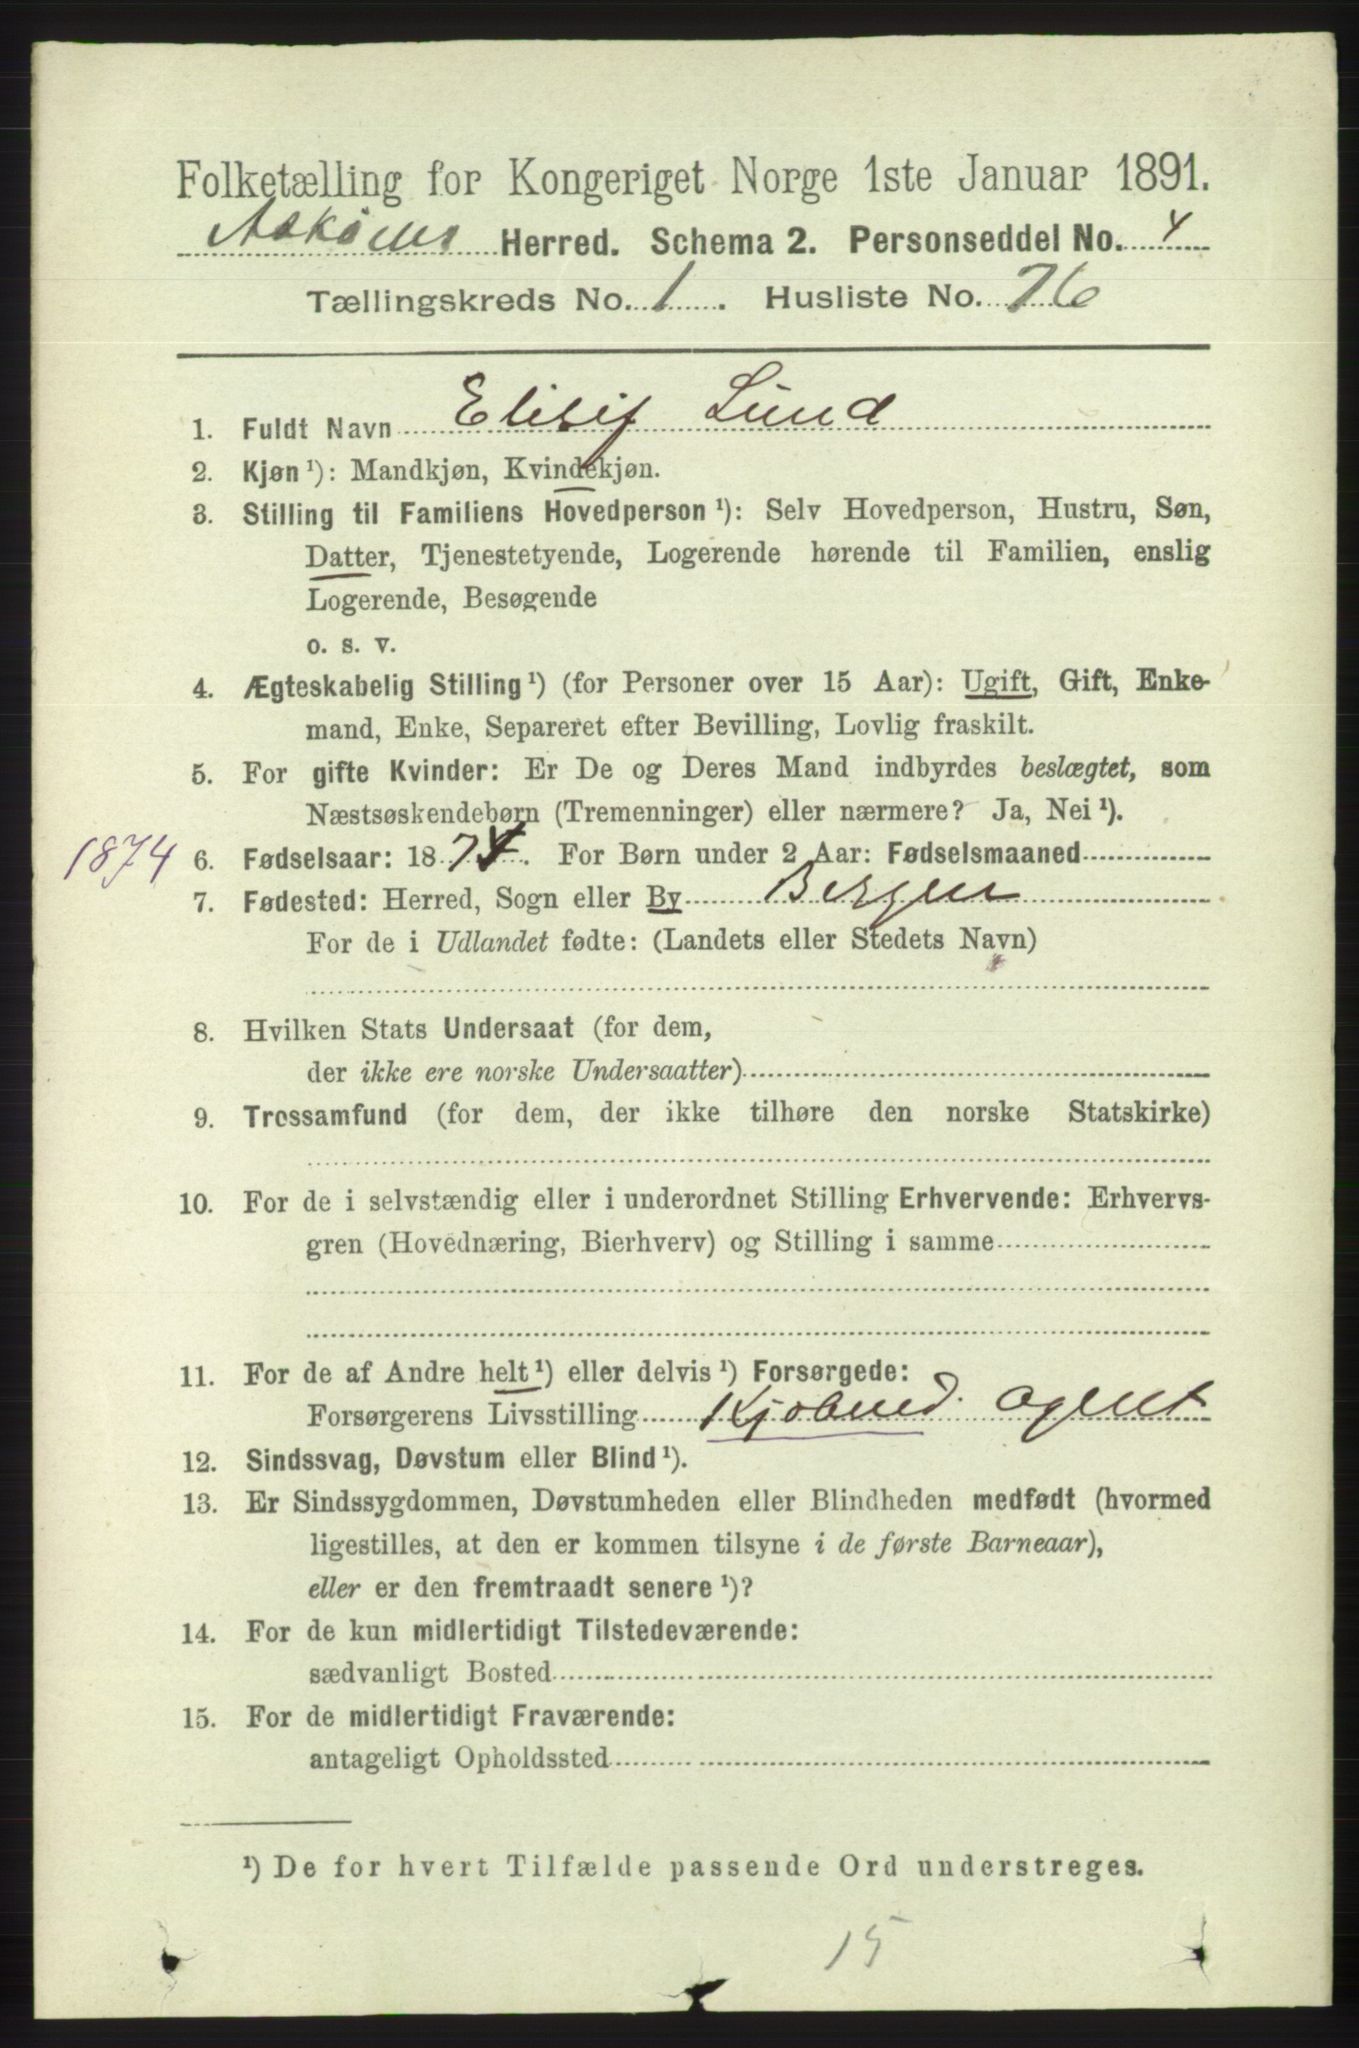 Folketælling for Kongeriget Norge 1ste Januar 1891.
Askøens Herred. Schema 2. Personseddel No. 4
Tællingskreds No. 1. Husliste No. 76
1. Fuldt Navn Elisif Lund
2. Kjøn ¹): Mandkjøn, Kvindekjøn.
3. Stilling til Familiens Hovedperson ¹): Selv Hovedperson, Hustru, Søn,
Datter, Tjenestetyende, Logerende hørende til Familien, enslig
Logerende, Besøgende
o. s. v.
4. Ægteskabelig Stilling ¹) (for Personer over 15 Aar): Ugift, Gift, Enke-
mand, Enke, Separeret efter Bevilling, Lovlig fraskilt.
5. For gifte Kvinder: Er De og Deres Mand indbyrdes beslægtet, som
Næstsøskendebørn (Tremenninger) eller nærmere? Ja, Nei ¹).
1874 6. Fødselsaar: 1874. For Børn under 2 Aar: Fødselsmaaned
7. Fødested: Herred, Sogn eller By Bergen
For de i Udlandet fødte: (Landets eller Stedets Navn)
8. Hvilken Stats Undersaat (for dem,
der ikke ere norske Undersaatter)
9. Trossamfund (for dem, der ikke tilhøre den norske Statskirke)
10. For de i selvstændig eller i underordnet Stilling Erhvervende: Erhvervs-
gren (Hovednæring, Bierhverv) og Stilling i samme
11. For de af Andre helt ¹) eller delvis ¹) Forsørgede:
Forsørgerens Livsstilling Kjøbmd. Agent
12. Sindssvag, Døvstum eller Blind ¹).
13. Er Sindssygdommen, Døvstumheden eller Blindheden medfødt (hvormed
ligestilles, at den er kommen tilsyne i de første Barneaar),
eller er den fremtraadt senere ¹)?
14. For de kun midlertidigt Tilstedeværende:
sædvanligt Bosted
15. For de midlertidigt Fraværende:
antageligt Opholdssted
¹) De for hvert Tilfælde passende Ord understreges.
15